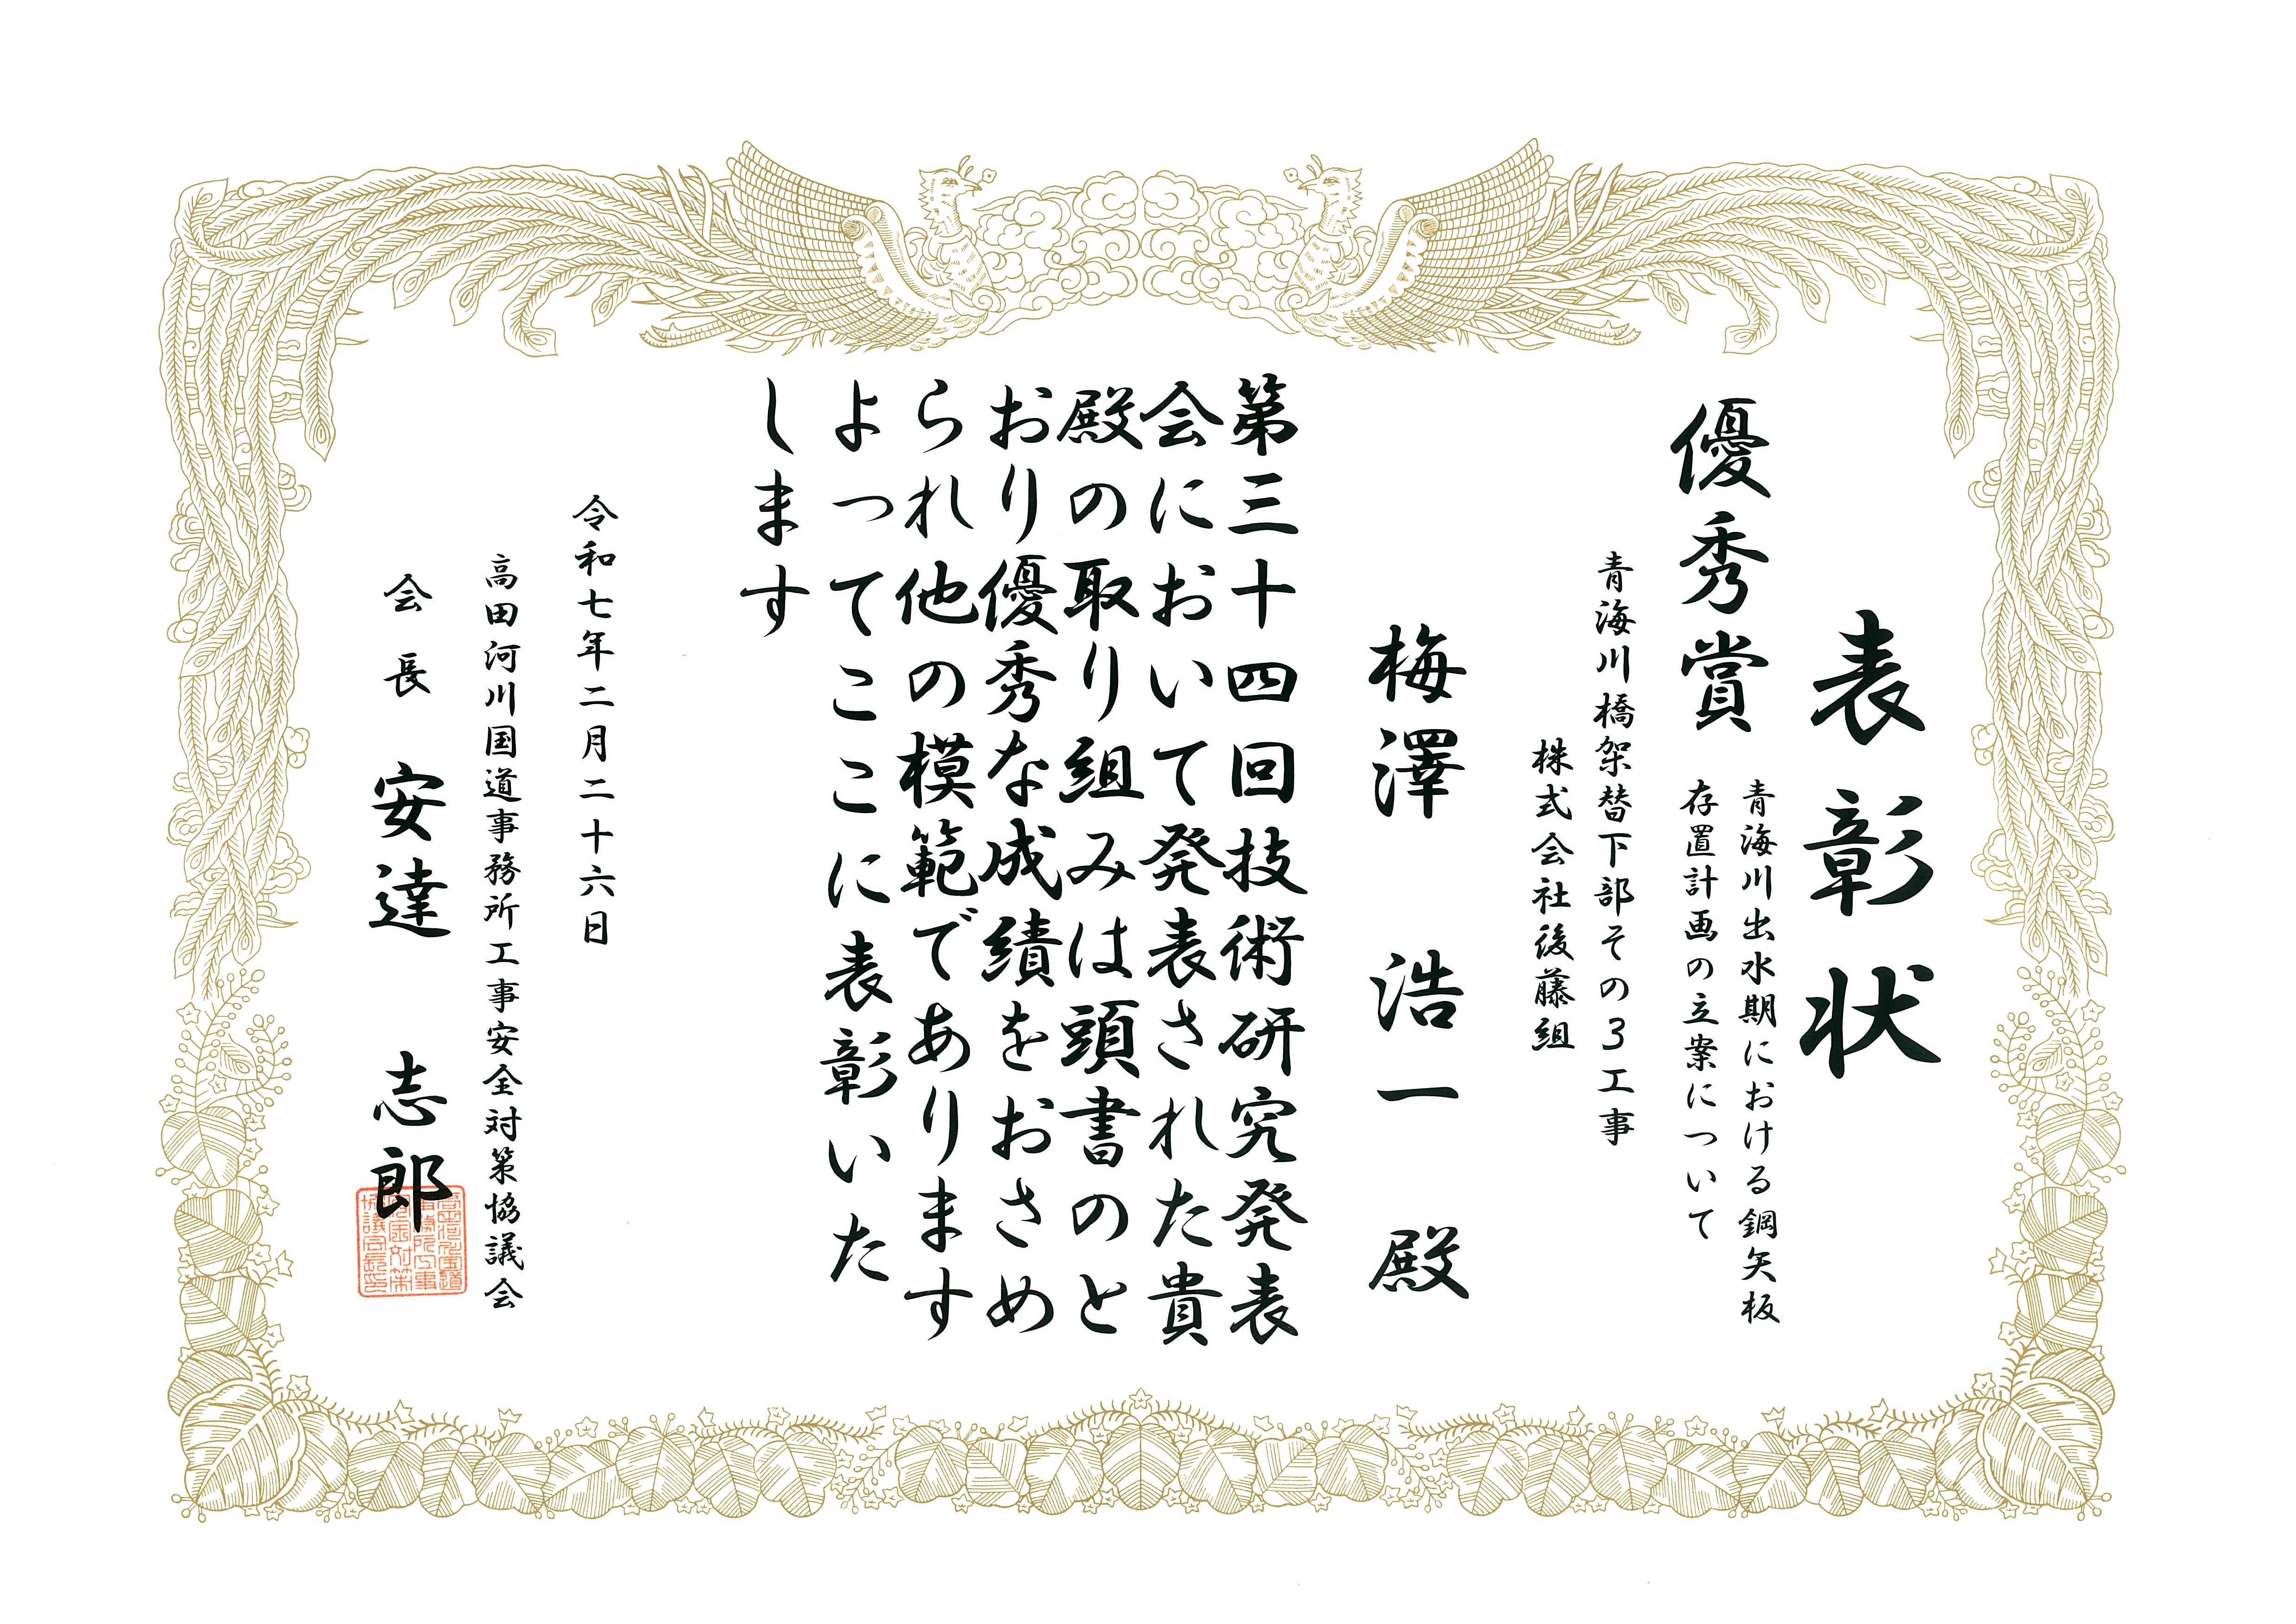 表彰状
優秀賞
青海川出水期における鋼矢板
存置計画の立案について
青海川橋架替下部その3工事
株式会社後藤組
梅澤 浩一 殿
第三十四回技術研究発表
会において発表された貴
殿の取り組みは頭書のと
おり優秀な成績をおさめ
られ他の模範であります
よってここに表彰いた
します
令和七年二月二十六日
高田河川国道事務所工事安全対策協議会
会長 安達 志郎